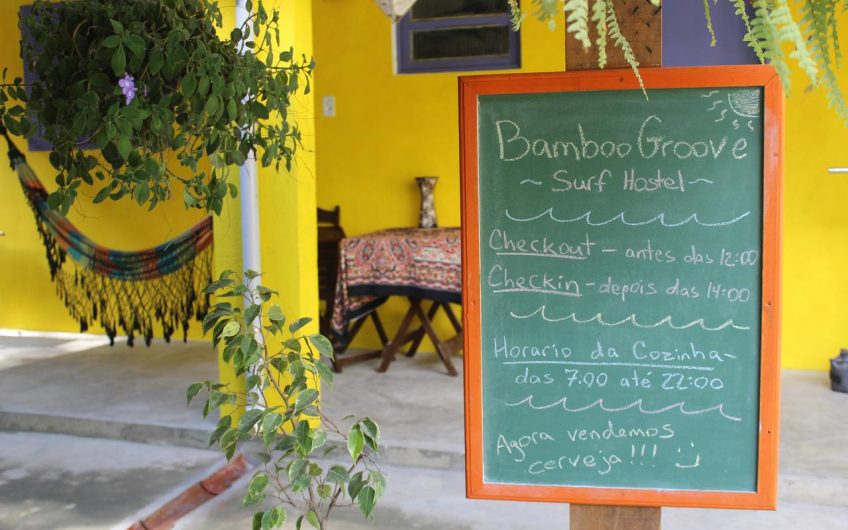 Bamboo Groove
~ Surf Hostel ~
Checkout - antes das 12:00
Checkin - depois das 14:00
Horario da Cozinha -
das 7:00 até 22:00
Agora vendemos
cerveja!!! :)